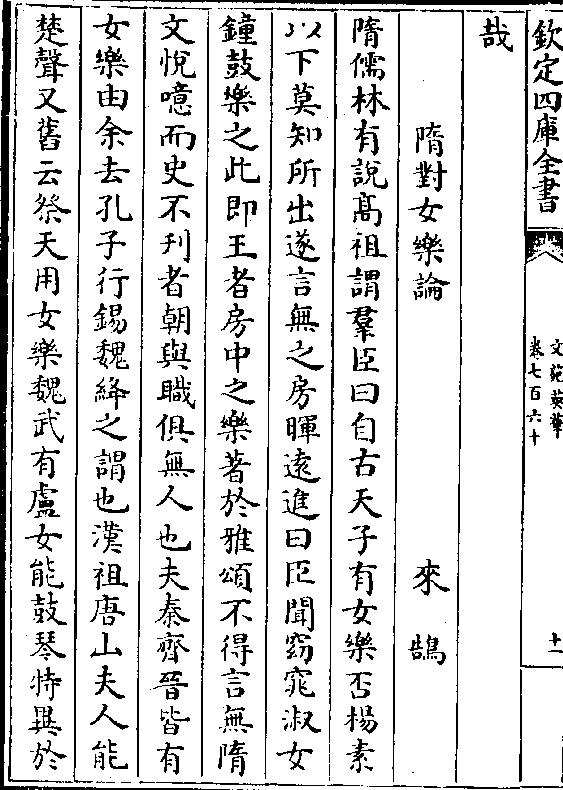 欽定四庫全書
文苑英華
卷七百六十
十一
哉
隋對女樂論 來鵠
隋儒林有說髙祖謂羣臣曰自古天子有女樂否楊素
以下莫知所出遂言無之房暉遠進曰臣聞窈窕淑女
鐘鼓樂之此即王者房中之樂著於雅頌不得言無隋
文悅噫而史不刋者朝與職俱無人也夫秦齊晉皆有
女樂由余去孔子行錫魏絳之謂也漢祖唐山夫人能
楚聲又舊云祭天用女樂魏武有盧女能鼓琴特異於